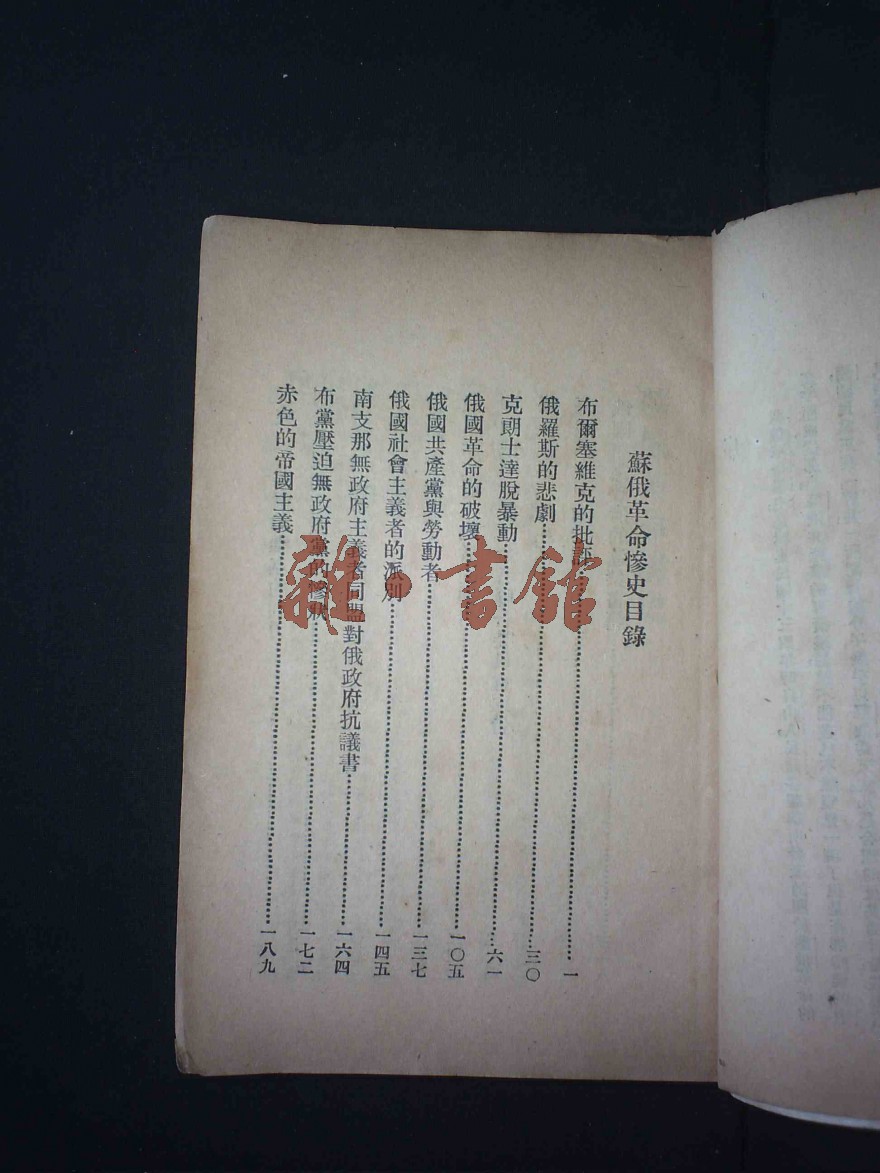 蘇俄革命慘史目錄
布爾塞維克的批評……一
俄羅斯的悲劇……三〇
克朗士達脫暴動……六一
俄國革命的破壞……一〇五
俄國共產黨與勞動者……一三七
俄國社會主義者的派別……一四五
南支那無政府主義者同盟對俄政府抗議書……一六四
布黨壓迫無政府黨的慘狀……一七二
赤色的帝國主義……一八九
雜·書館